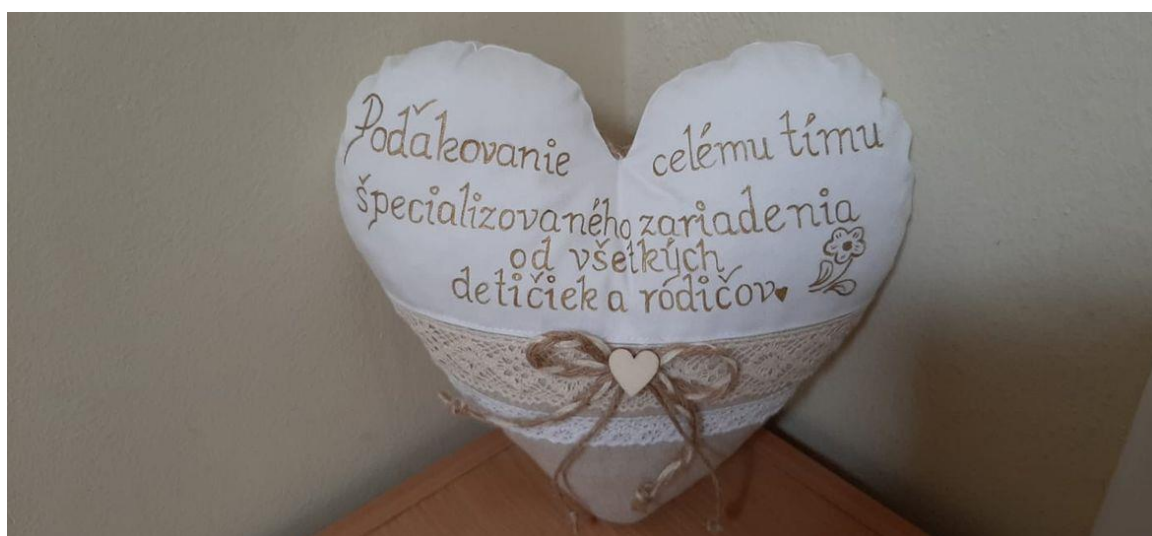 Poďakovanie celému tímu
špecializovaného zariadenia
od všetkých
detičiek a ródičov